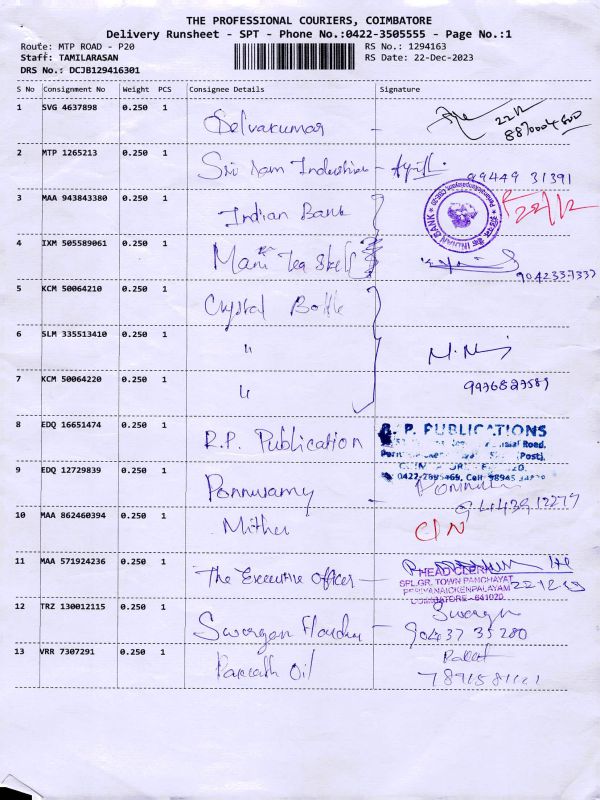 THE PROFESSIONAL COURIERS, COIMBATORE
Delivery Runsheet - SPT - Phone No.:0422-3505555 - Page No.:1
Route: MTP ROAD - P20 RS No.: 1294163
Staff: TAMILARASAN RS Date: 22-Dec-2023
DRS No.: DCJB129416301
S No Consignment No Weight PCS Consignee Details Signature
1 SVG 4637898 0.250 1 Selvakumar -
2 MTP 1265213 0.250 1 Sri Ram Industries - 99449 31391
3 MAA 943843380 0.250 1 Indian Bank INDIAN BANK 22/12
4 IXM 505589061 0.250 1 Mani Tea Stall 9042337337
5 KCM 50064210 0.250 1 Crystal Bottle
6 SLM 335513410 0.250 1 "
7 KCM 50064220 0.250 1 "
8 EDQ 16651474 0.250 1 R.P. Publication R. P. PUBLICATIONS
(Post),
9 EDQ 12729839 0.250 1 Ponnusamy -
10 MAA 862460394 0.250 1 Mithu
11 MAA 571924236 0.250 1 The Executive officer -
HEAD CLERK
SPL.GR. TOWN PANCHAYAT
PERIYANAICKENPALAYAM
COIMBATORE - 641020
12 TRZ 130012115 0.250 1 90437 35280
13 VRR 7307291 0.250 1 Oil